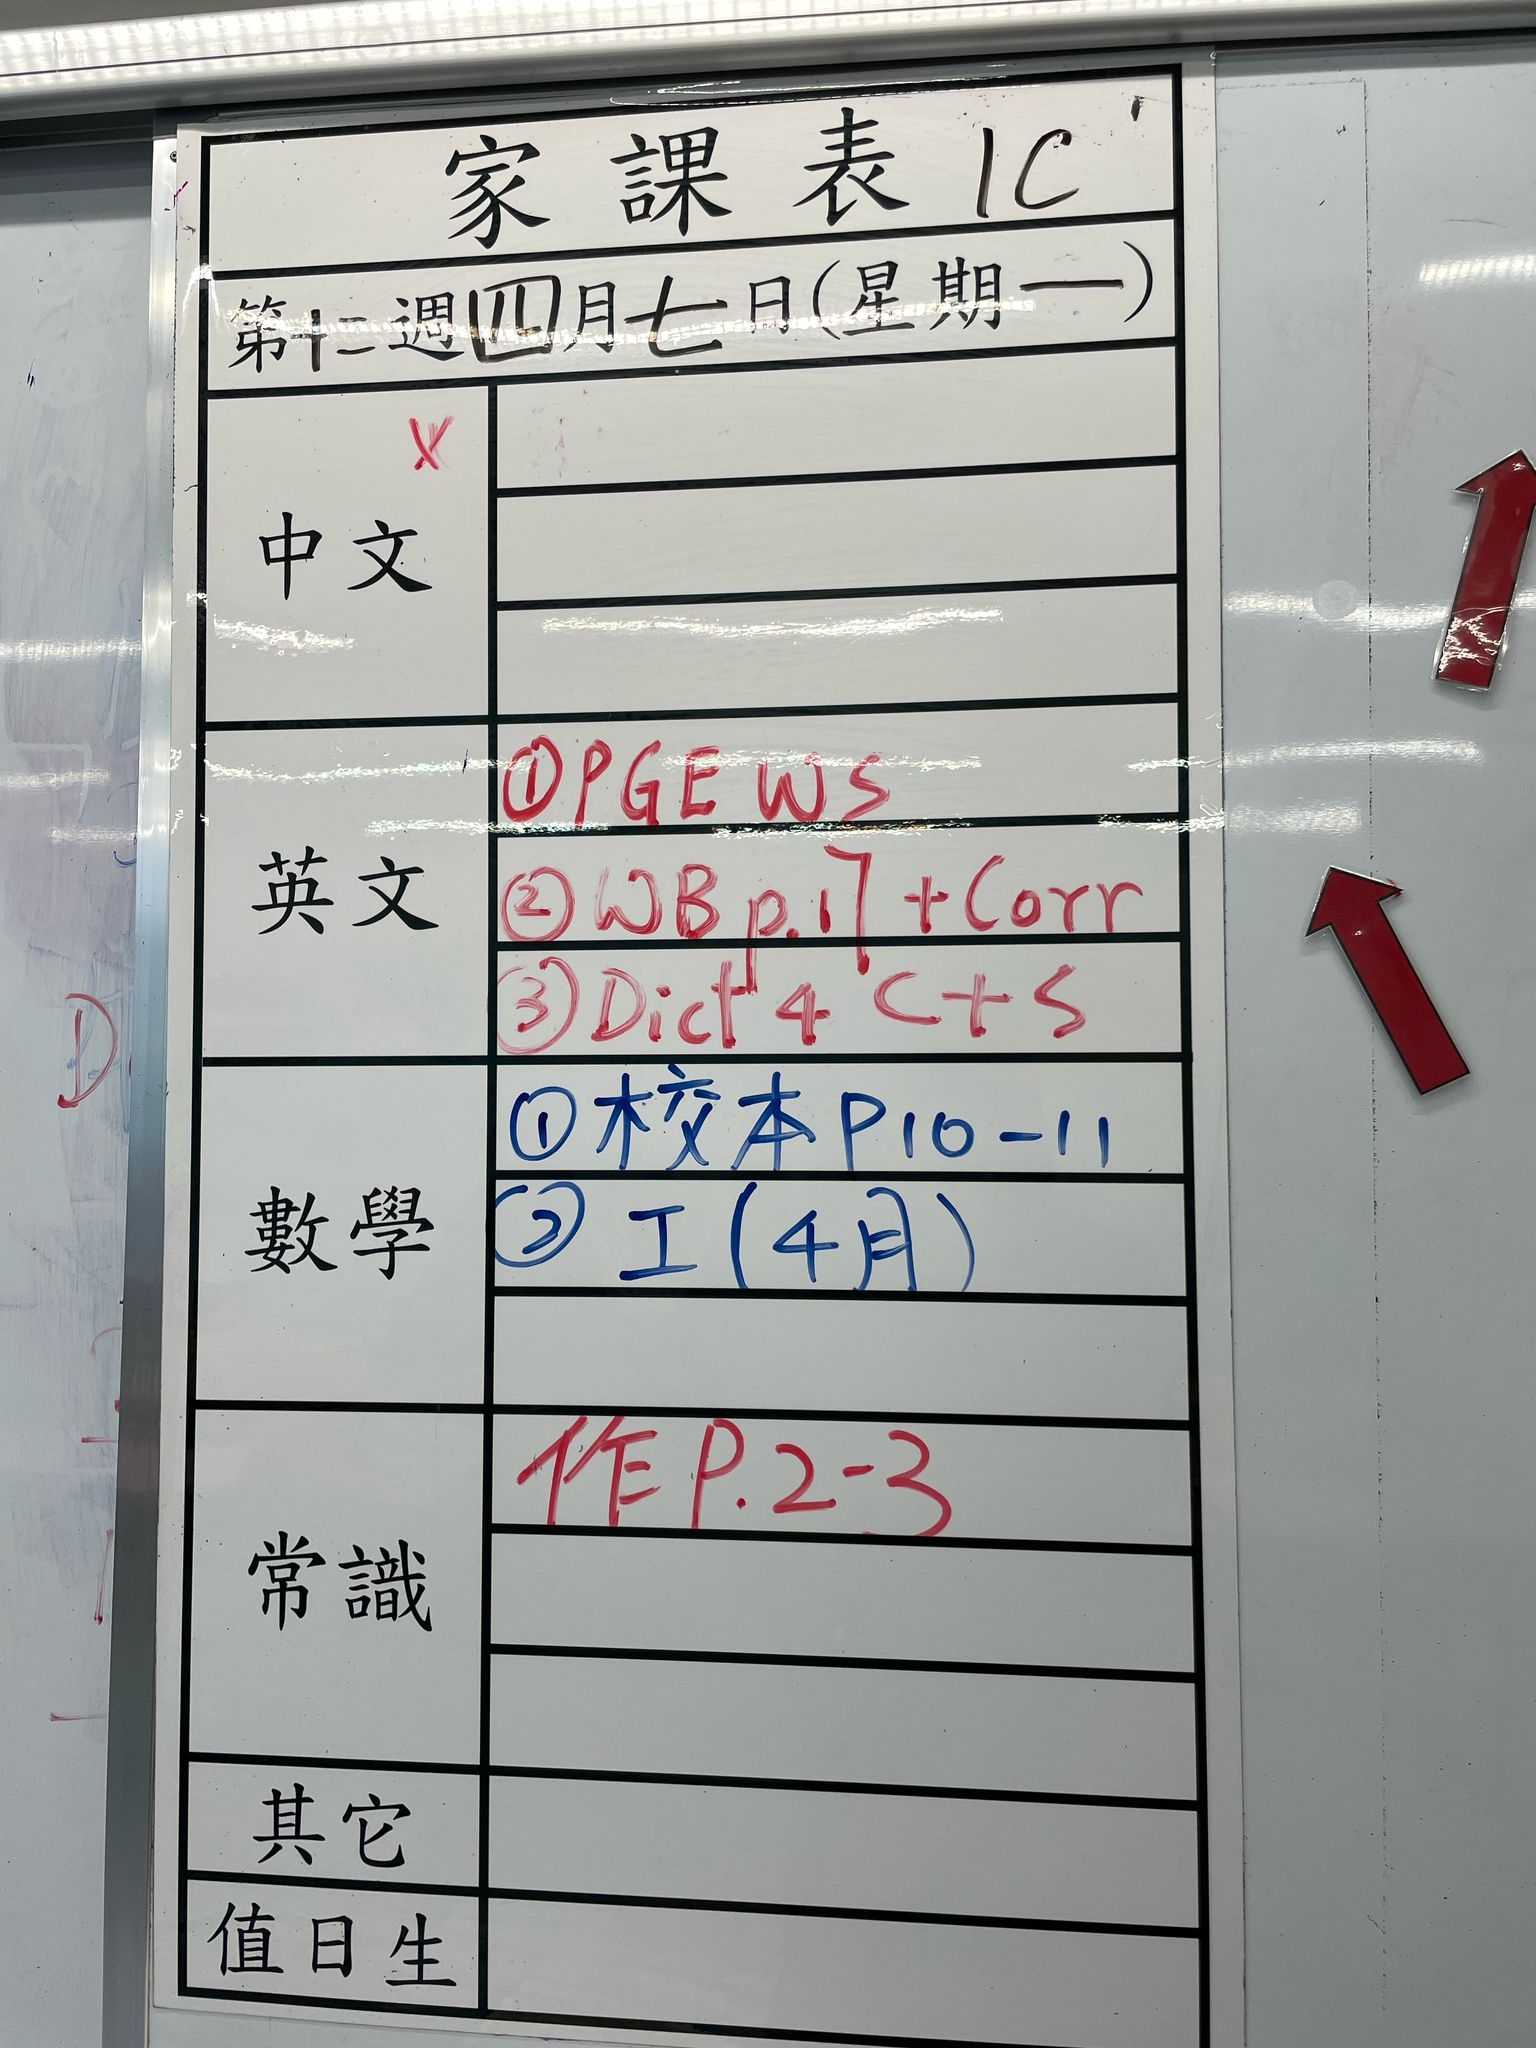 家課表 1C
第十二週四月七日(星期一)
中文 X
英文
①PGE WS
②WB p.17 + Corr
③Dict 4 C+S
數學
①校本 P10-11
② 工(4月)
常識
作 P.2-3
其它
值日生
D